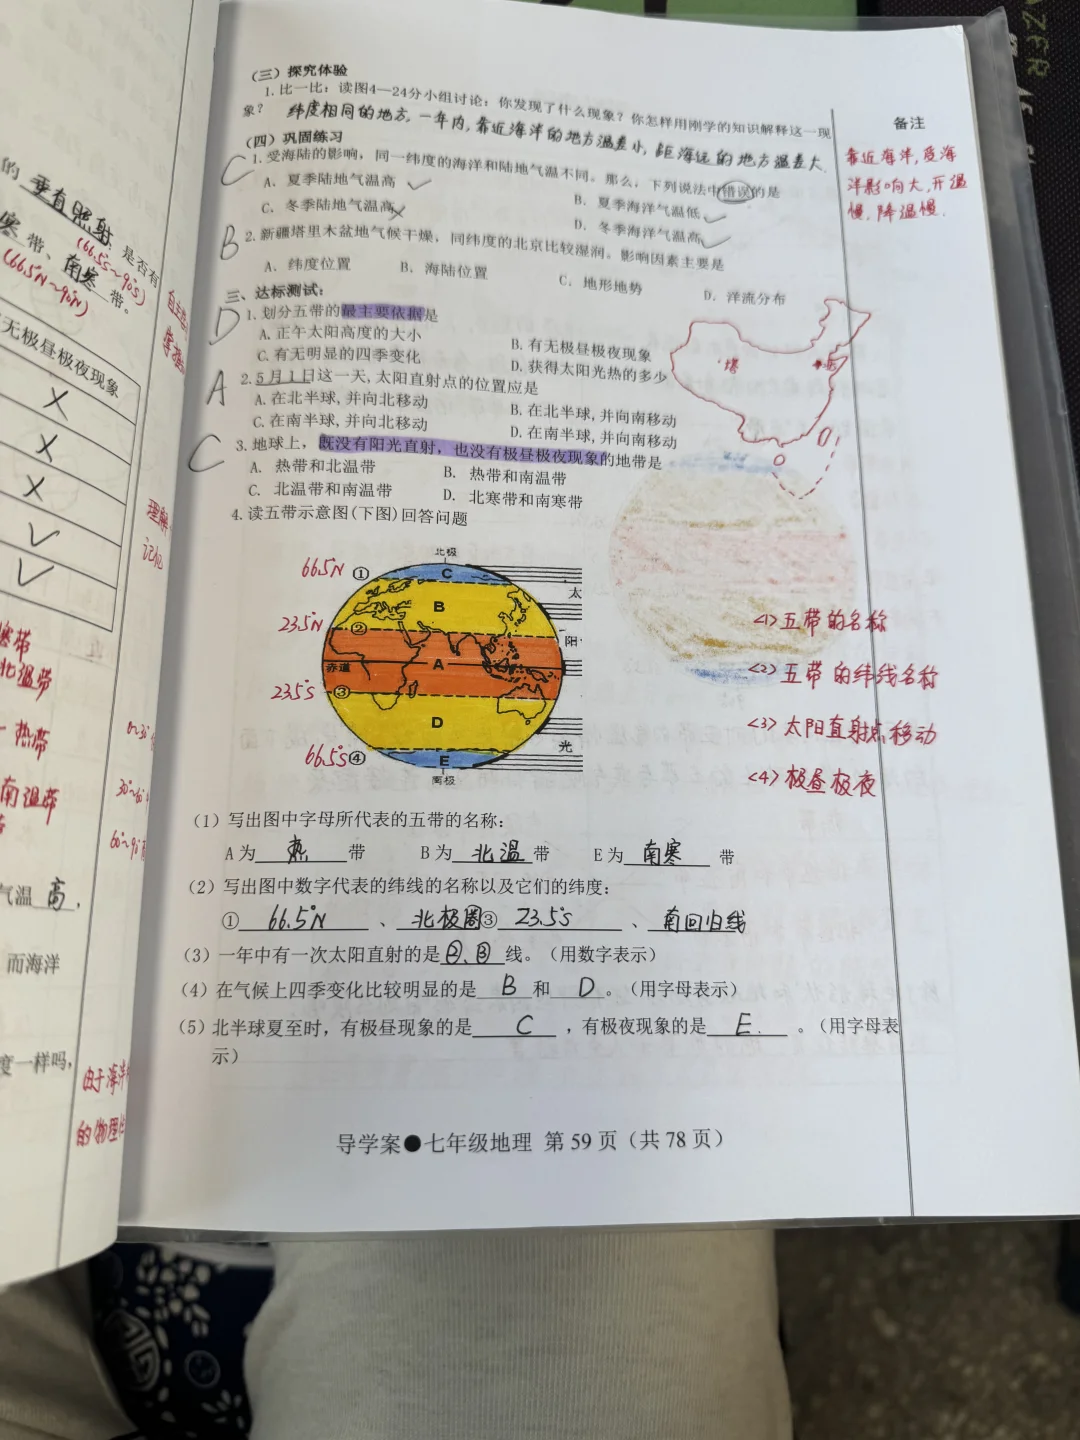 （三）探究体验
1. 比一比：读图4—24分小组讨论：你发现了什么现象？你怎样用刚学的知识解释这一现
象？ 纬度相同的地方，一年内，靠近海洋的地方温差小，距海远的地方温差大.
（四）巩固练习
C 1. 受海陆的影响，同一纬度的海洋和陆地气温不同。那么，下列说法中错误的是
A. 夏季陆地气温高 ✓
B. 夏季海洋气温低 ✓
C. 冬季陆地气温高 ×
D. 冬季海洋气温高 ✓
B 2. 新疆塔里木盆地气候干燥，同纬度的北京比较湿润。影响因素主要是
A. 纬度位置 B. 海陆位置 C. 地形地势 D. 洋流分布
三、达标测试：
D 1. 划分五带的最主要依据是
A. 正午太阳高度的大小 B. 有无极昼极夜现象
C. 有无明显的四季变化 D. 获得太阳光热的多少
A 2. 5月1日这一天, 太阳直射点的位置应是
A. 在北半球, 并向北移动 B. 在北半球, 并向南移动
C. 在南半球, 并向北移动 D. 在南半球, 并向南移动
C 3. 地球上，既没有阳光直射，也没有极昼极夜现象的地带是
A. 热带和北温带 B. 热带和南温带
C. 北温带和南温带 D. 北寒带和南寒带
4. 读五带示意图(下图)回答问题
北极
66.5N ① C
太
B
23.5°N ②
阳
赤道 A
23.5°S ③
D
光
66.5°S ④ E
南极
（1）写出图中字母所代表的五带的名称：
A 为 热 带 B 为 北温 带 E 为 南寒 带
（2）写出图中数字代表的纬线的名称以及它们的纬度：
① 66.5°N 、 北极圈 ③ 23.5°S 、 南回归线
（3）一年中有一次太阳直射的是 ②、③ 线。（用数字表示）
（4）在气候上四季变化比较明显的是 B 和 D 。（用字母表示）
（5）北半球夏至时，有极昼现象的是 C ，有极夜现象的是 E. 。（用字母表
示）
导学案●七年级地理 第 59 页（共 78 页）
备注
靠近海洋，受海
洋影响大，升温
慢，降温慢.
塔
<1> 五带的名称
<2> 五带的纬线名称
<3> 太阳直射点移动
<4> 极昼极夜
的 垂直照射 是否有
(66.5°S~90°S)
寒 带、南寒 带。
(66.5°N~90°N)
无极昼极夜现象
×
×
×
✓
✓
理解
记忆
寒带
北温带
热带
南温带
气温 高，
而海洋
度一样吗，
由于海洋
的物理性